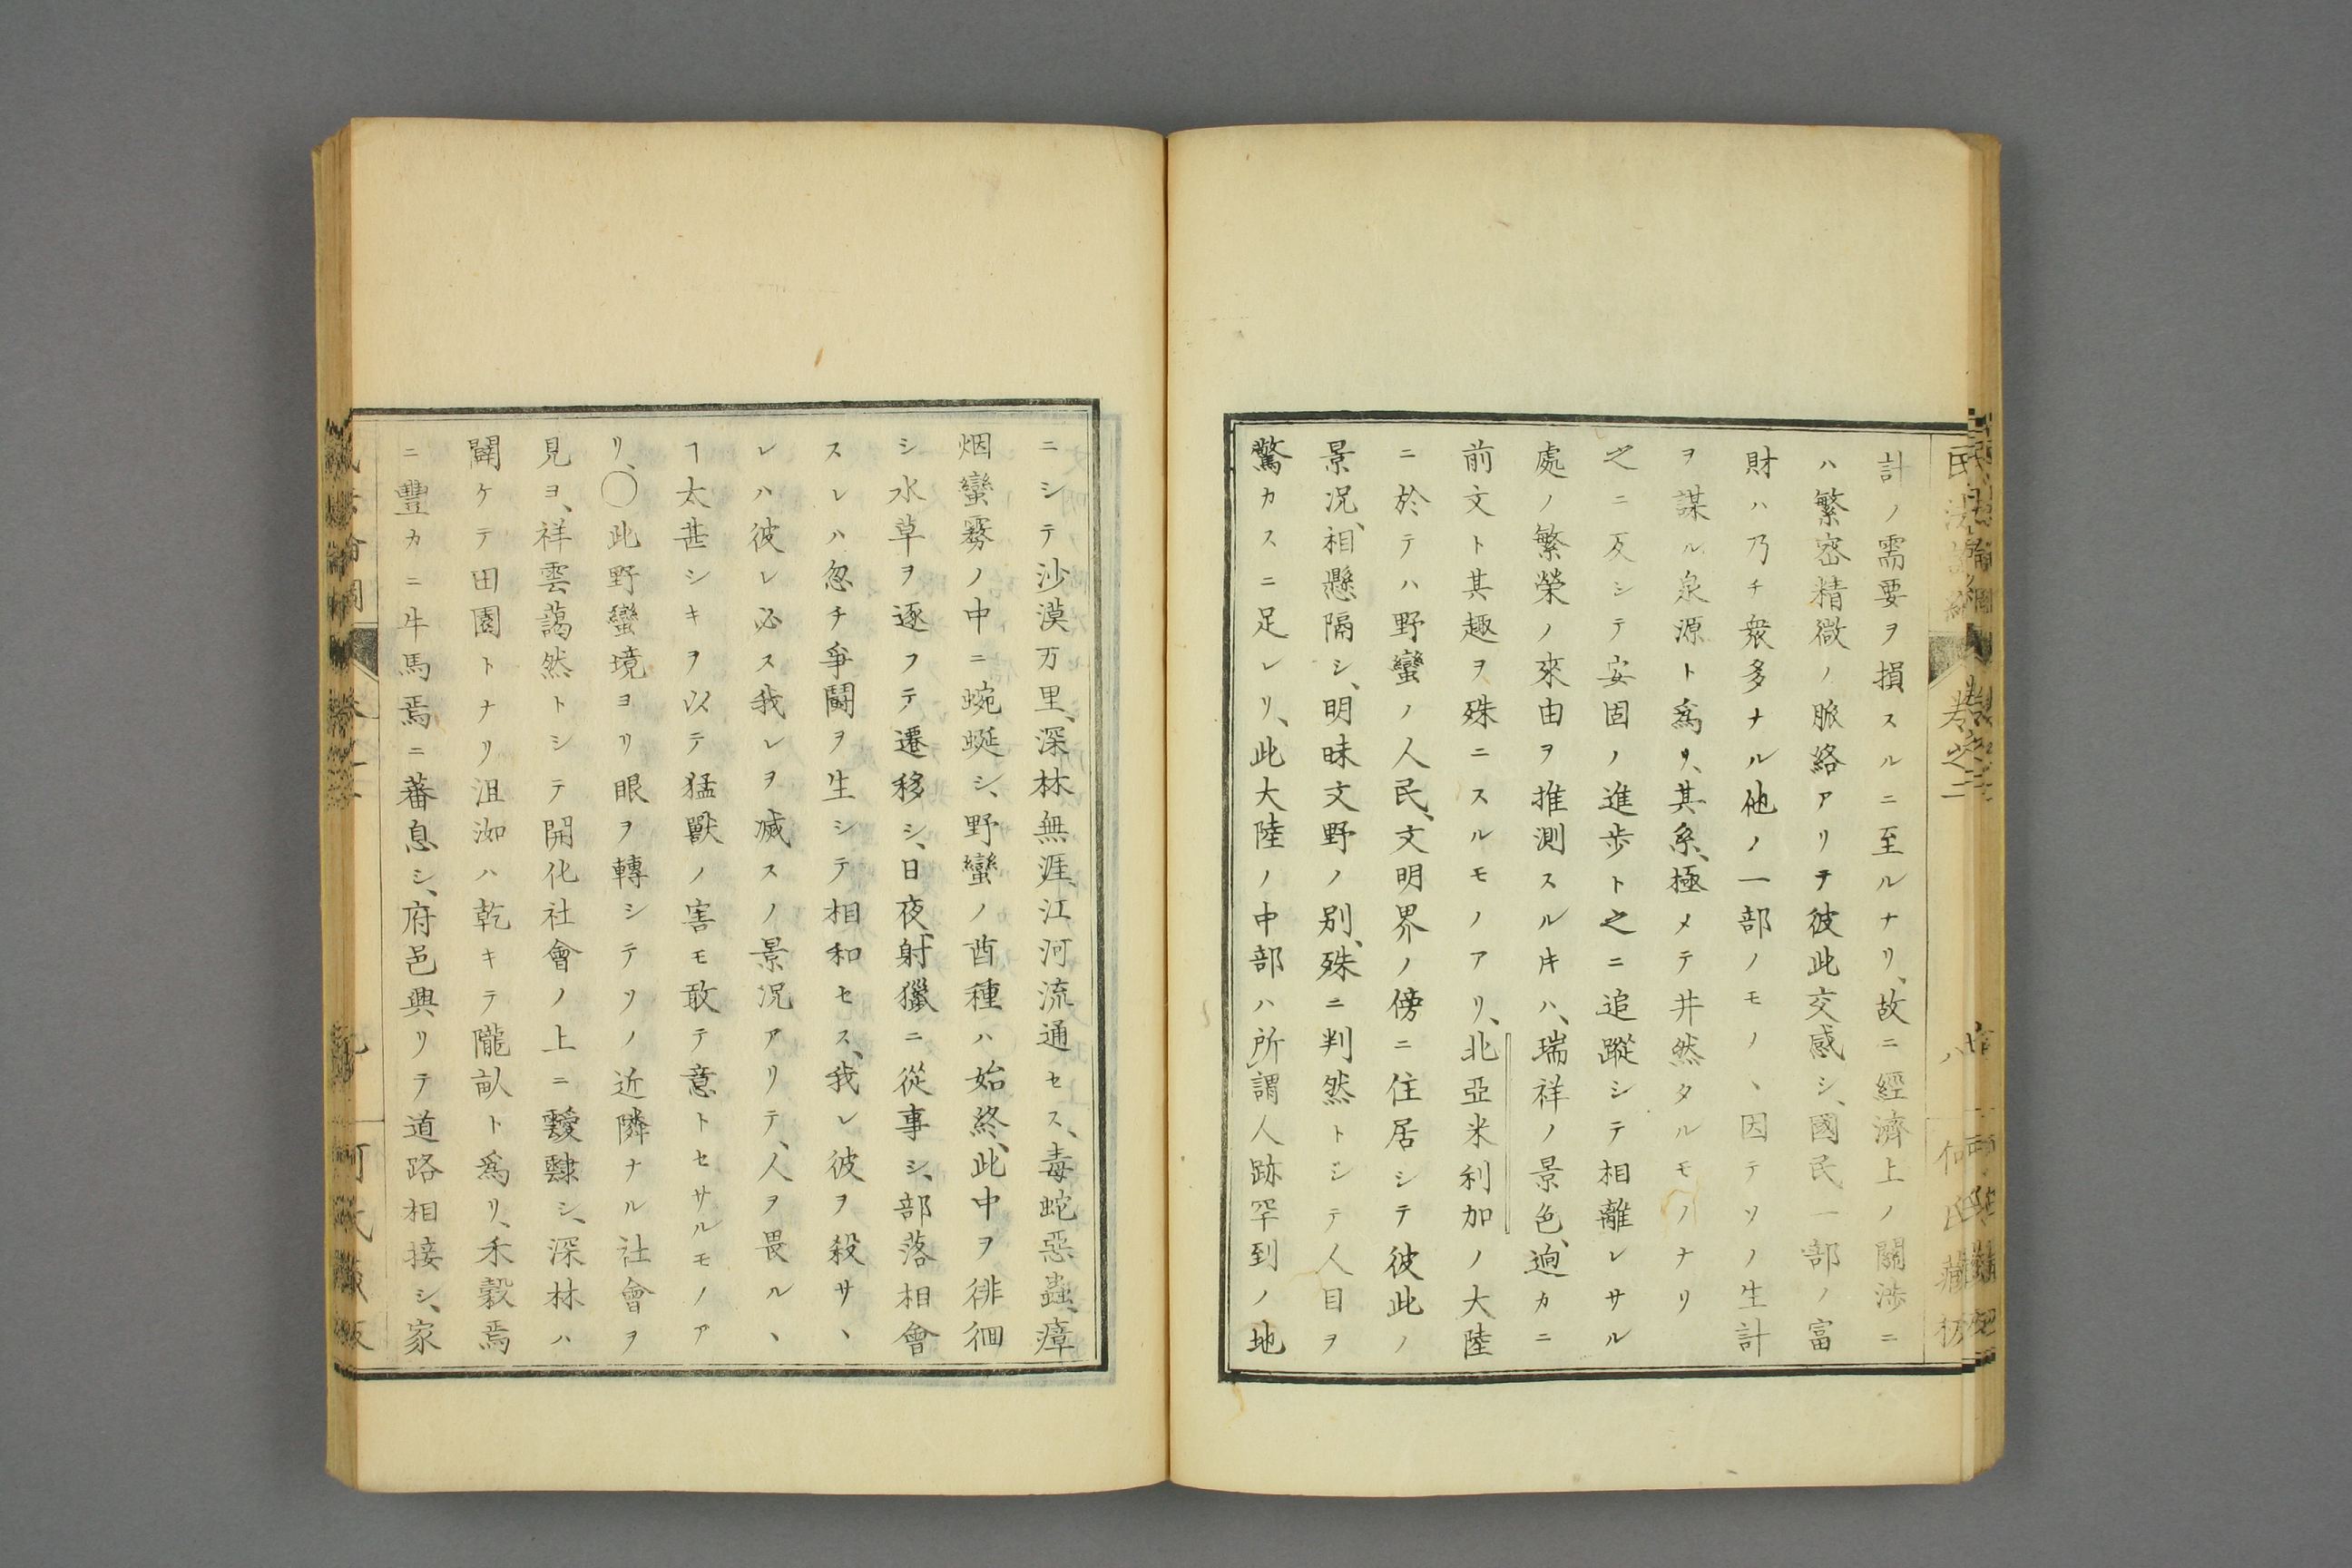 計ノ需要ヲ損スルニ至ルナリ、故ニ經濟上ノ關渉ニ
ハ繁密精微ノ脈絡アリテ彼此交感シ、國民一部ノ富
財ハ乃チ衆多ナル他ノ一部ノモノヽ因テソノ生計
ヲ謀ル泉源ト爲リ、其系、極メテ井然タルモノナリ
之ニ反シテ安固ノ進歩ト之ニ追蹤シテ相離レサル
處ノ繁榮ノ來由ヲ推測スルヰハ、瑞祥ノ景色、逈カニ
前文ト其趣ヲ殊ニスルモノアリ、北亞米利加ノ大陸
ニ於テハ野蠻ノ人民、文明界ノ傍ニ住居シテ彼此ノ
景况、相懸隔シ、明昧文野ノ別、殊ニ判然トシテ人目ヲ
驚カスニ足レリ、此大陸ノ中部ハ所謂人跡罕到ノ地
ニシテ沙漠万里、深林無涯、江河流通セス、毒蛇惡蟲、瘴
烟蠻霧ノ中ニ蜿蜒シ、野蠻ノ酋種ハ始終、此中ヲ徘徊
シ水草ヲ逐フテ遷移シ、日夜、射獵ニ從事シ、部落相會
スレハ忽チ爭鬪ヲ生シテ相和セス、我レ彼ヲ殺サヽ
レハ彼レ必ス我レヲ滅スノ景况アリテ、人ヲ畏ルヽ
ヿ太甚シキヲ以テ猛獸ノ害モ敢テ意トセサルモノア
リ、〇此野蠻境ヨリ眼ヲ轉シテソノ近隣ナル社會ヲ
見ヨ、祥雲藹然トシテ開化社會ノ上ニ靉靆シ、深林ハ
闢ケテ田園トナリ沮洳ハ乾キテ隴畝ト爲リ、禾穀焉
ニ豐カニ牛馬焉ニ蕃息シ、府邑興リテ道路相接シ、家